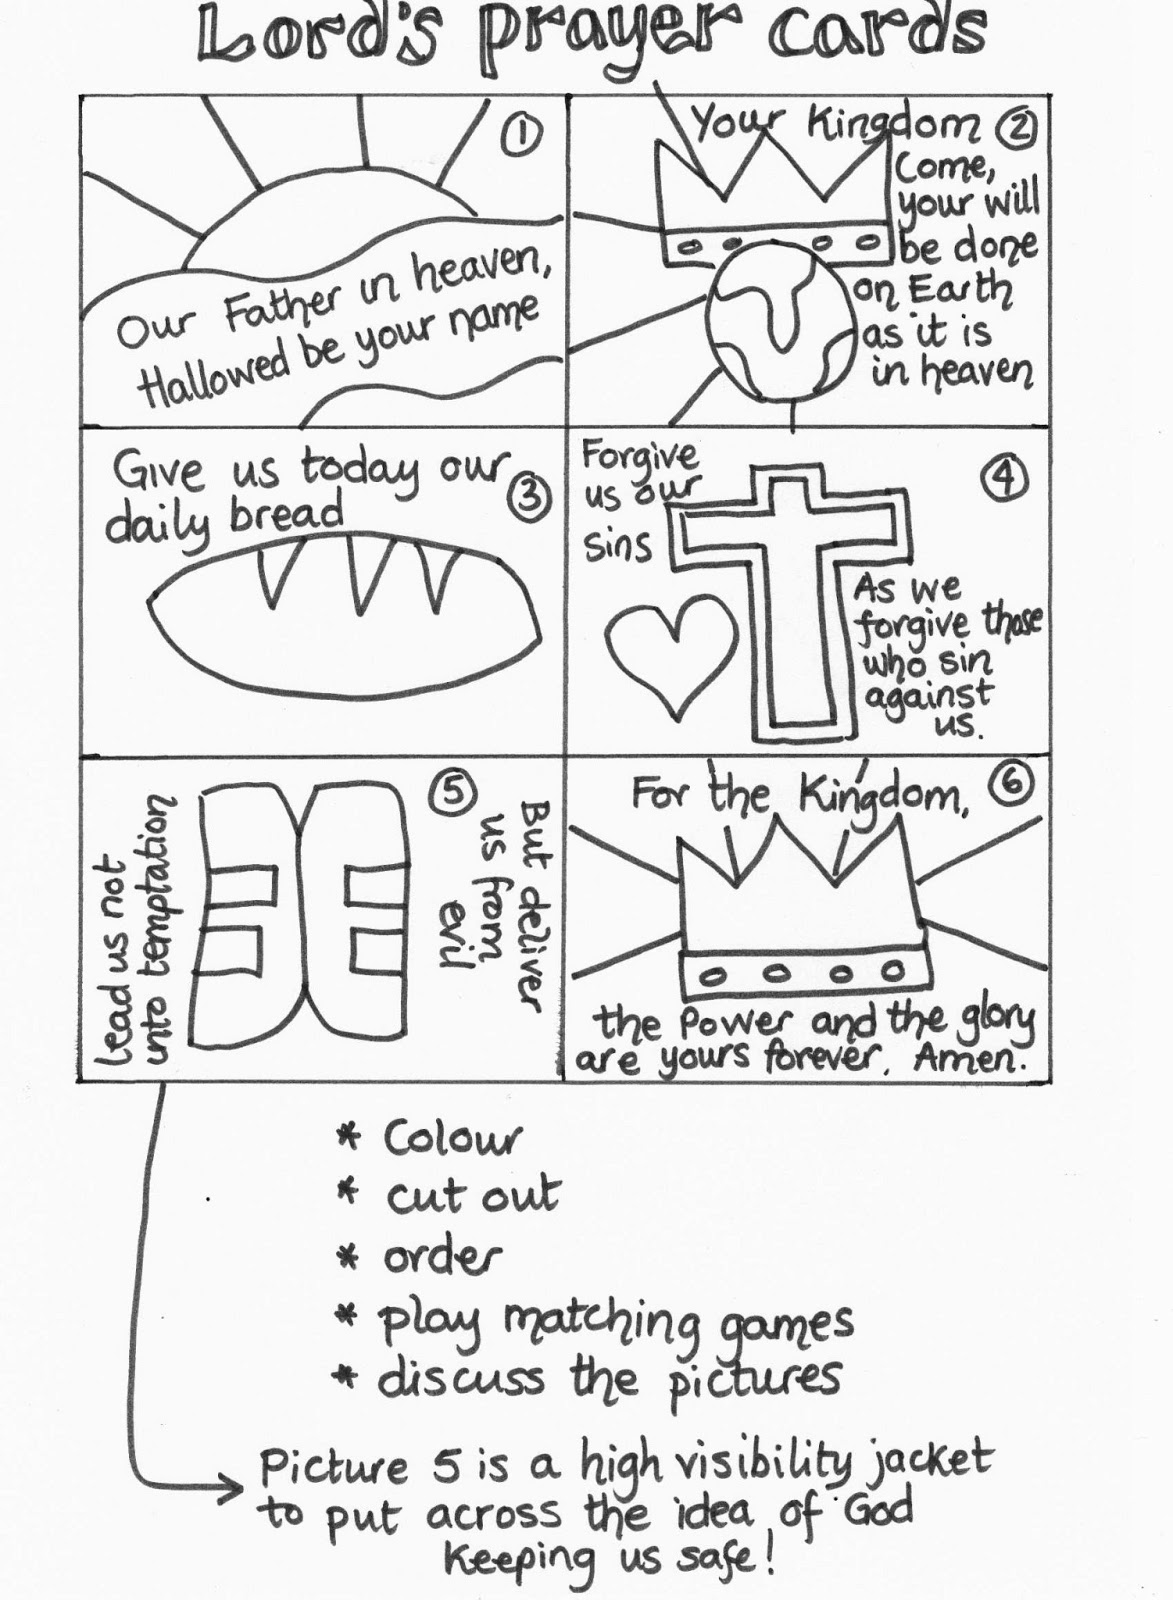 Lord's prayer cards
1
Our Father in heaven,
Hallowed be your name
Your Kingdom 2
Come,
your will
be done
on Earth
as it is
in heaven
Give us today our
daily bread
3
Forgive
us our
sins
4
As we
forgive those
who sin
against
us.
5
Lead us not
into temptation
But deliver
us from
evil
For the Kingdom, 6
the Power and the glory
are yours forever. Amen.
* Colour
* cut out
* order
* play matching games
* discuss the pictures
Picture 5 is a high visibility jacket
to put across the idea of God
keeping us safe!